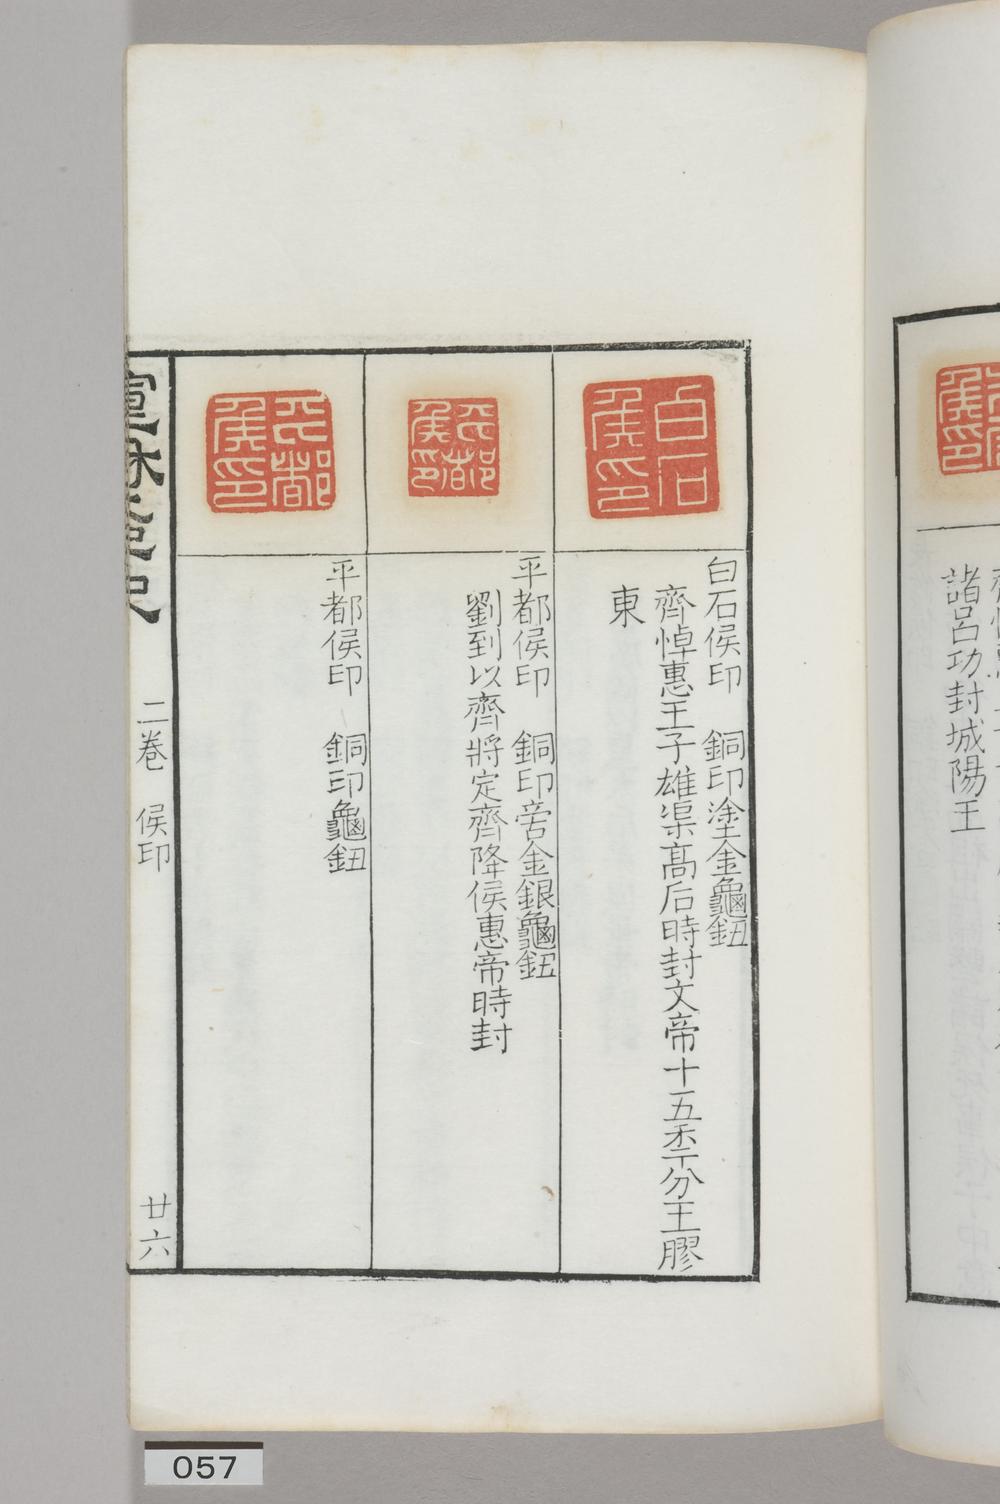 諸呂功封城陽王
白石
侯印
白石侯印 銅印塗金龜鈕
齊悼惠王子雄渠高后時封文帝十五秊分王膠
東
平都
侯印
平都侯印 銅印 金銀龜鈕
劉到以齊將定齊降侯惠帝時封
平都
侯印
平都侯印 銅印龜鈕
二卷 侯印 廿六
057